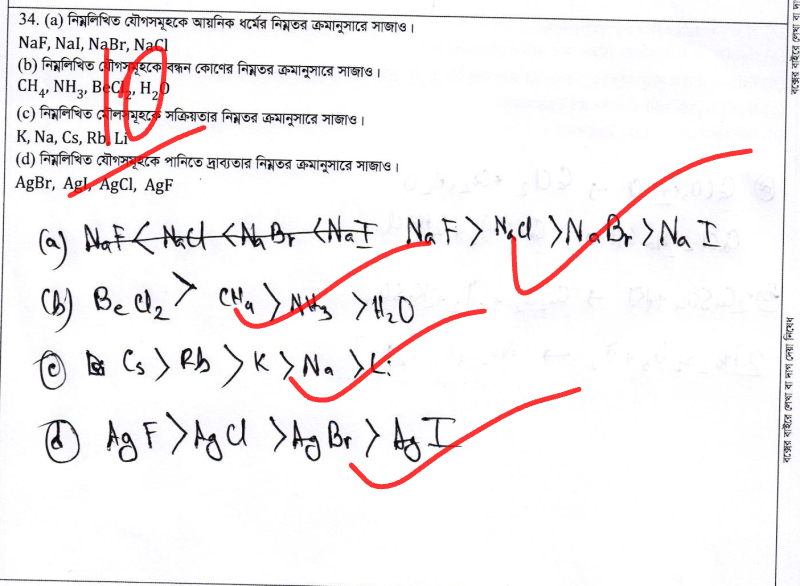 34. (a) নিম্নলিখিত যৌগসমূহকে আয়নিক ধর্মের নিম্নতর ক্রমানুসারে সাজাও।
NaF, NaI, NaBr, NaCl
(b) নিম্নলিখিত যৌগসমূহকে বন্ধন কোণের নিম্নতর ক্রমানুসারে সাজাও।
CH₄, NH₃, BeCl₂, H₂O
(c) নিম্নলিখিত মৌলসমূহকে সক্রিয়তার নিম্নতর ক্রমানুসারে সাজাও।
K, Na, Cs, Rb, Li
(d) নিম্নলিখিত যৌগসমূহকে পানিতে দ্রাব্যতার নিম্নতর ক্রমানুসারে সাজাও।
AgBr, AgI, AgCl, AgF
10
(a) NaF < NaCl < NaBr < NaI NaF > NaCl > NaBr > NaI
(b) BeCl₂ > CH₄ > NH₃ > H₂O
(c) Cs > Rb > K > Na > Li
(d) AgF > AgCl > AgBr > AgI
বক্সের বাইরে লেখা বা দাগ দেয়া নিষেধ
বক্সের বাইরে লেখা বা দা